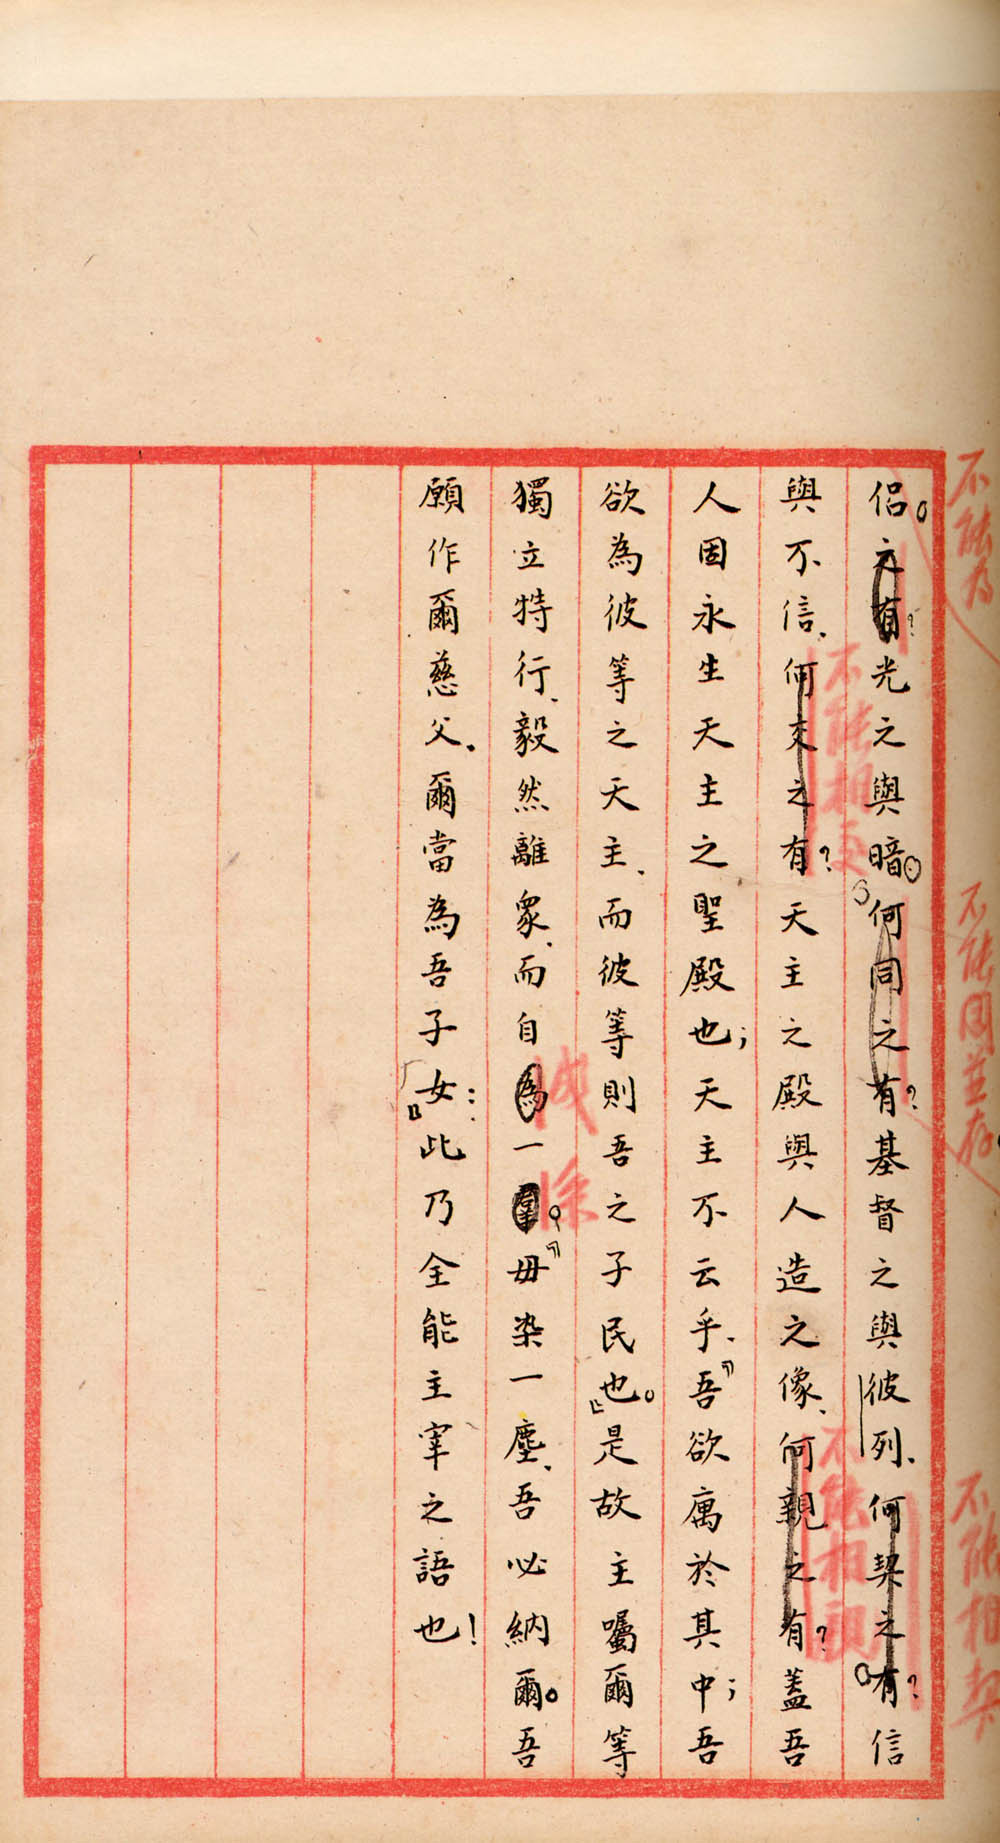 侶。之有？光之與暗。何同之有？基督之與彼列、何契之有？信
與不信、何交之有？天主之殿與人造之像、何親之有？蓋吾
人固永生天主之聖殿也；天主不云乎、『吾欲寓於其中；吾
欲為彼等之天主、而彼等則吾之子民也。』是故主囑爾等
獨立特行、毅然離衆、而自為一羣。『毋染一塵、吾必納爾。吾
願作爾慈父、爾當為吾子女：』此乃全能主宰之語也！
不能為
不能相交
不能同並存
成
除
不能相親
不能相契